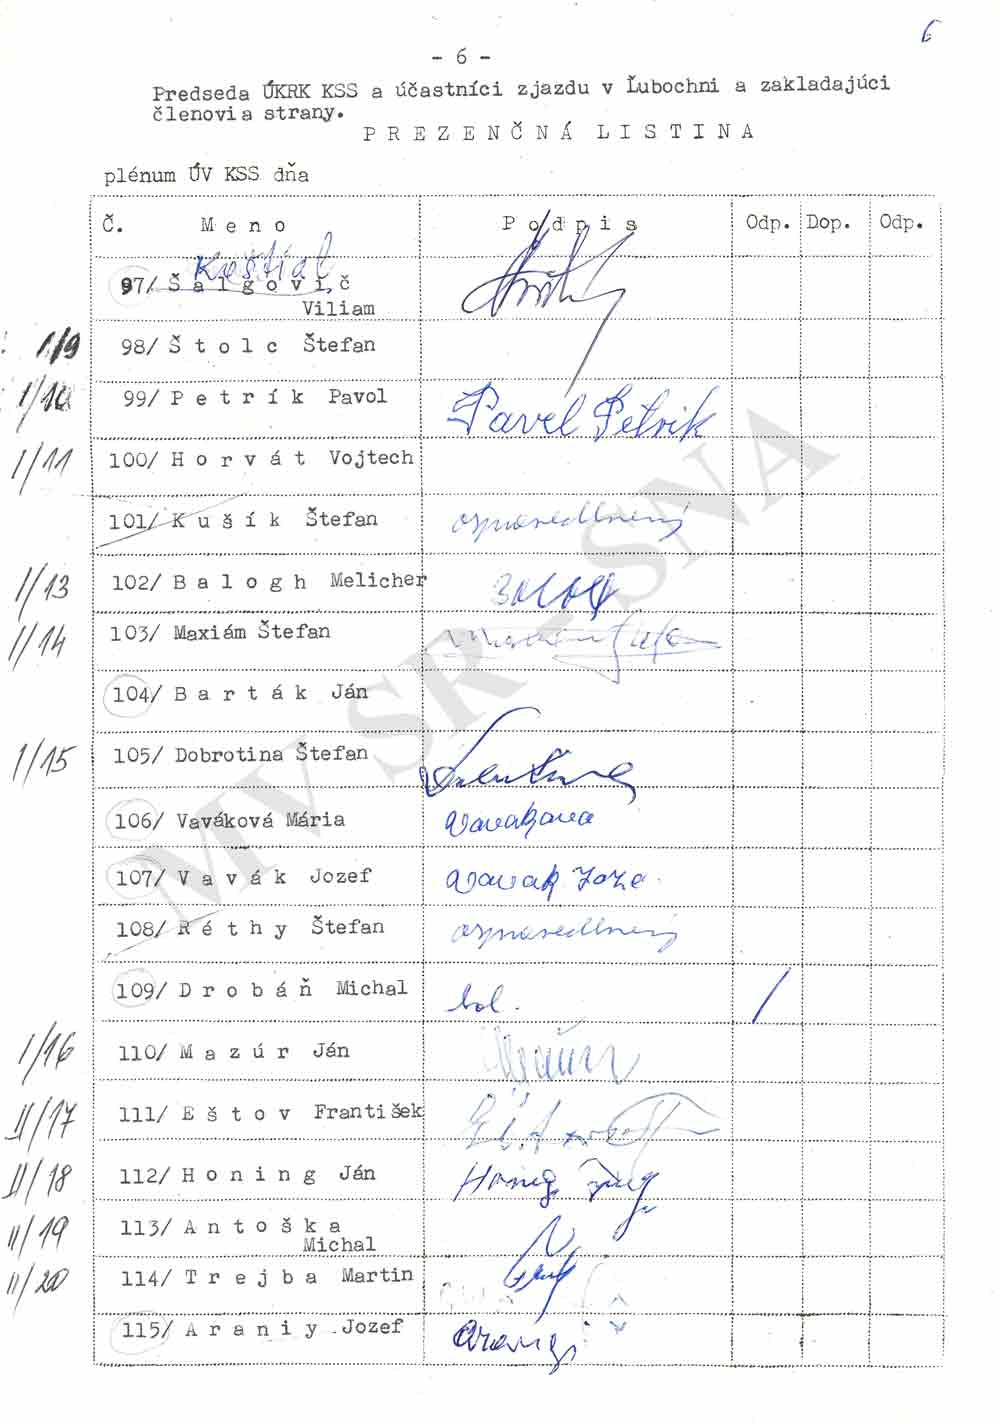 6
- 6 -
Predseda ÚKRK KSS a účastníci zjazdu v Ľubochni a zakladajúci
členovia strany.
P R E Z E N Č N Á  L I S T I N A
plénum ÚV KSS dňa
Č. M e n o P o d p i s Odp. Dop. Odp.
97/ Š a l g o v i č
Viliam
1/9 98/ Š t o l c Štefan
1/10 99/ P e t r í k Pavol Pavel Petrik
1/11 100/ H o r v á t Vojtech
101/ K u š í k Štefan ospravedlnený
1/13 102/ B a l o g h Melicher
1/14 103/ Maxiám Štefan
104/ B a r t á k Ján
1/15 105/ Dobrotina Štefan
106/ Vaváková Mária Vavakova
107/ V a v á k Jozef Vavak Joze
108/ R é t h y Štefan ospravedlnený
109/ D r o b á ň Michal bol. /
1/16 110/ M a z ú r Ján
II/17 111/ E š t o v František
II/18 112/ H o n i n g Ján Honig
II/19 113/ A n t o š k a
Michal
II/20 114/ T r e j b a Martin
115/ A r a n i y Jozef
MV SR - SNA